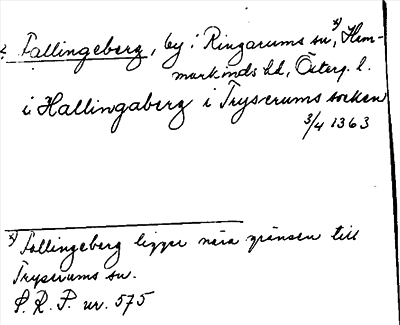 Fallingeberg, by i Ringarums sn x), Ham-
markinds hd, Österg. l.
i Hallingaberg i Tryserums socken
3/4 1363
x) Fallingeberg ligger nära gränsen till
Tryserums sn.
S. R. P. nr. 575